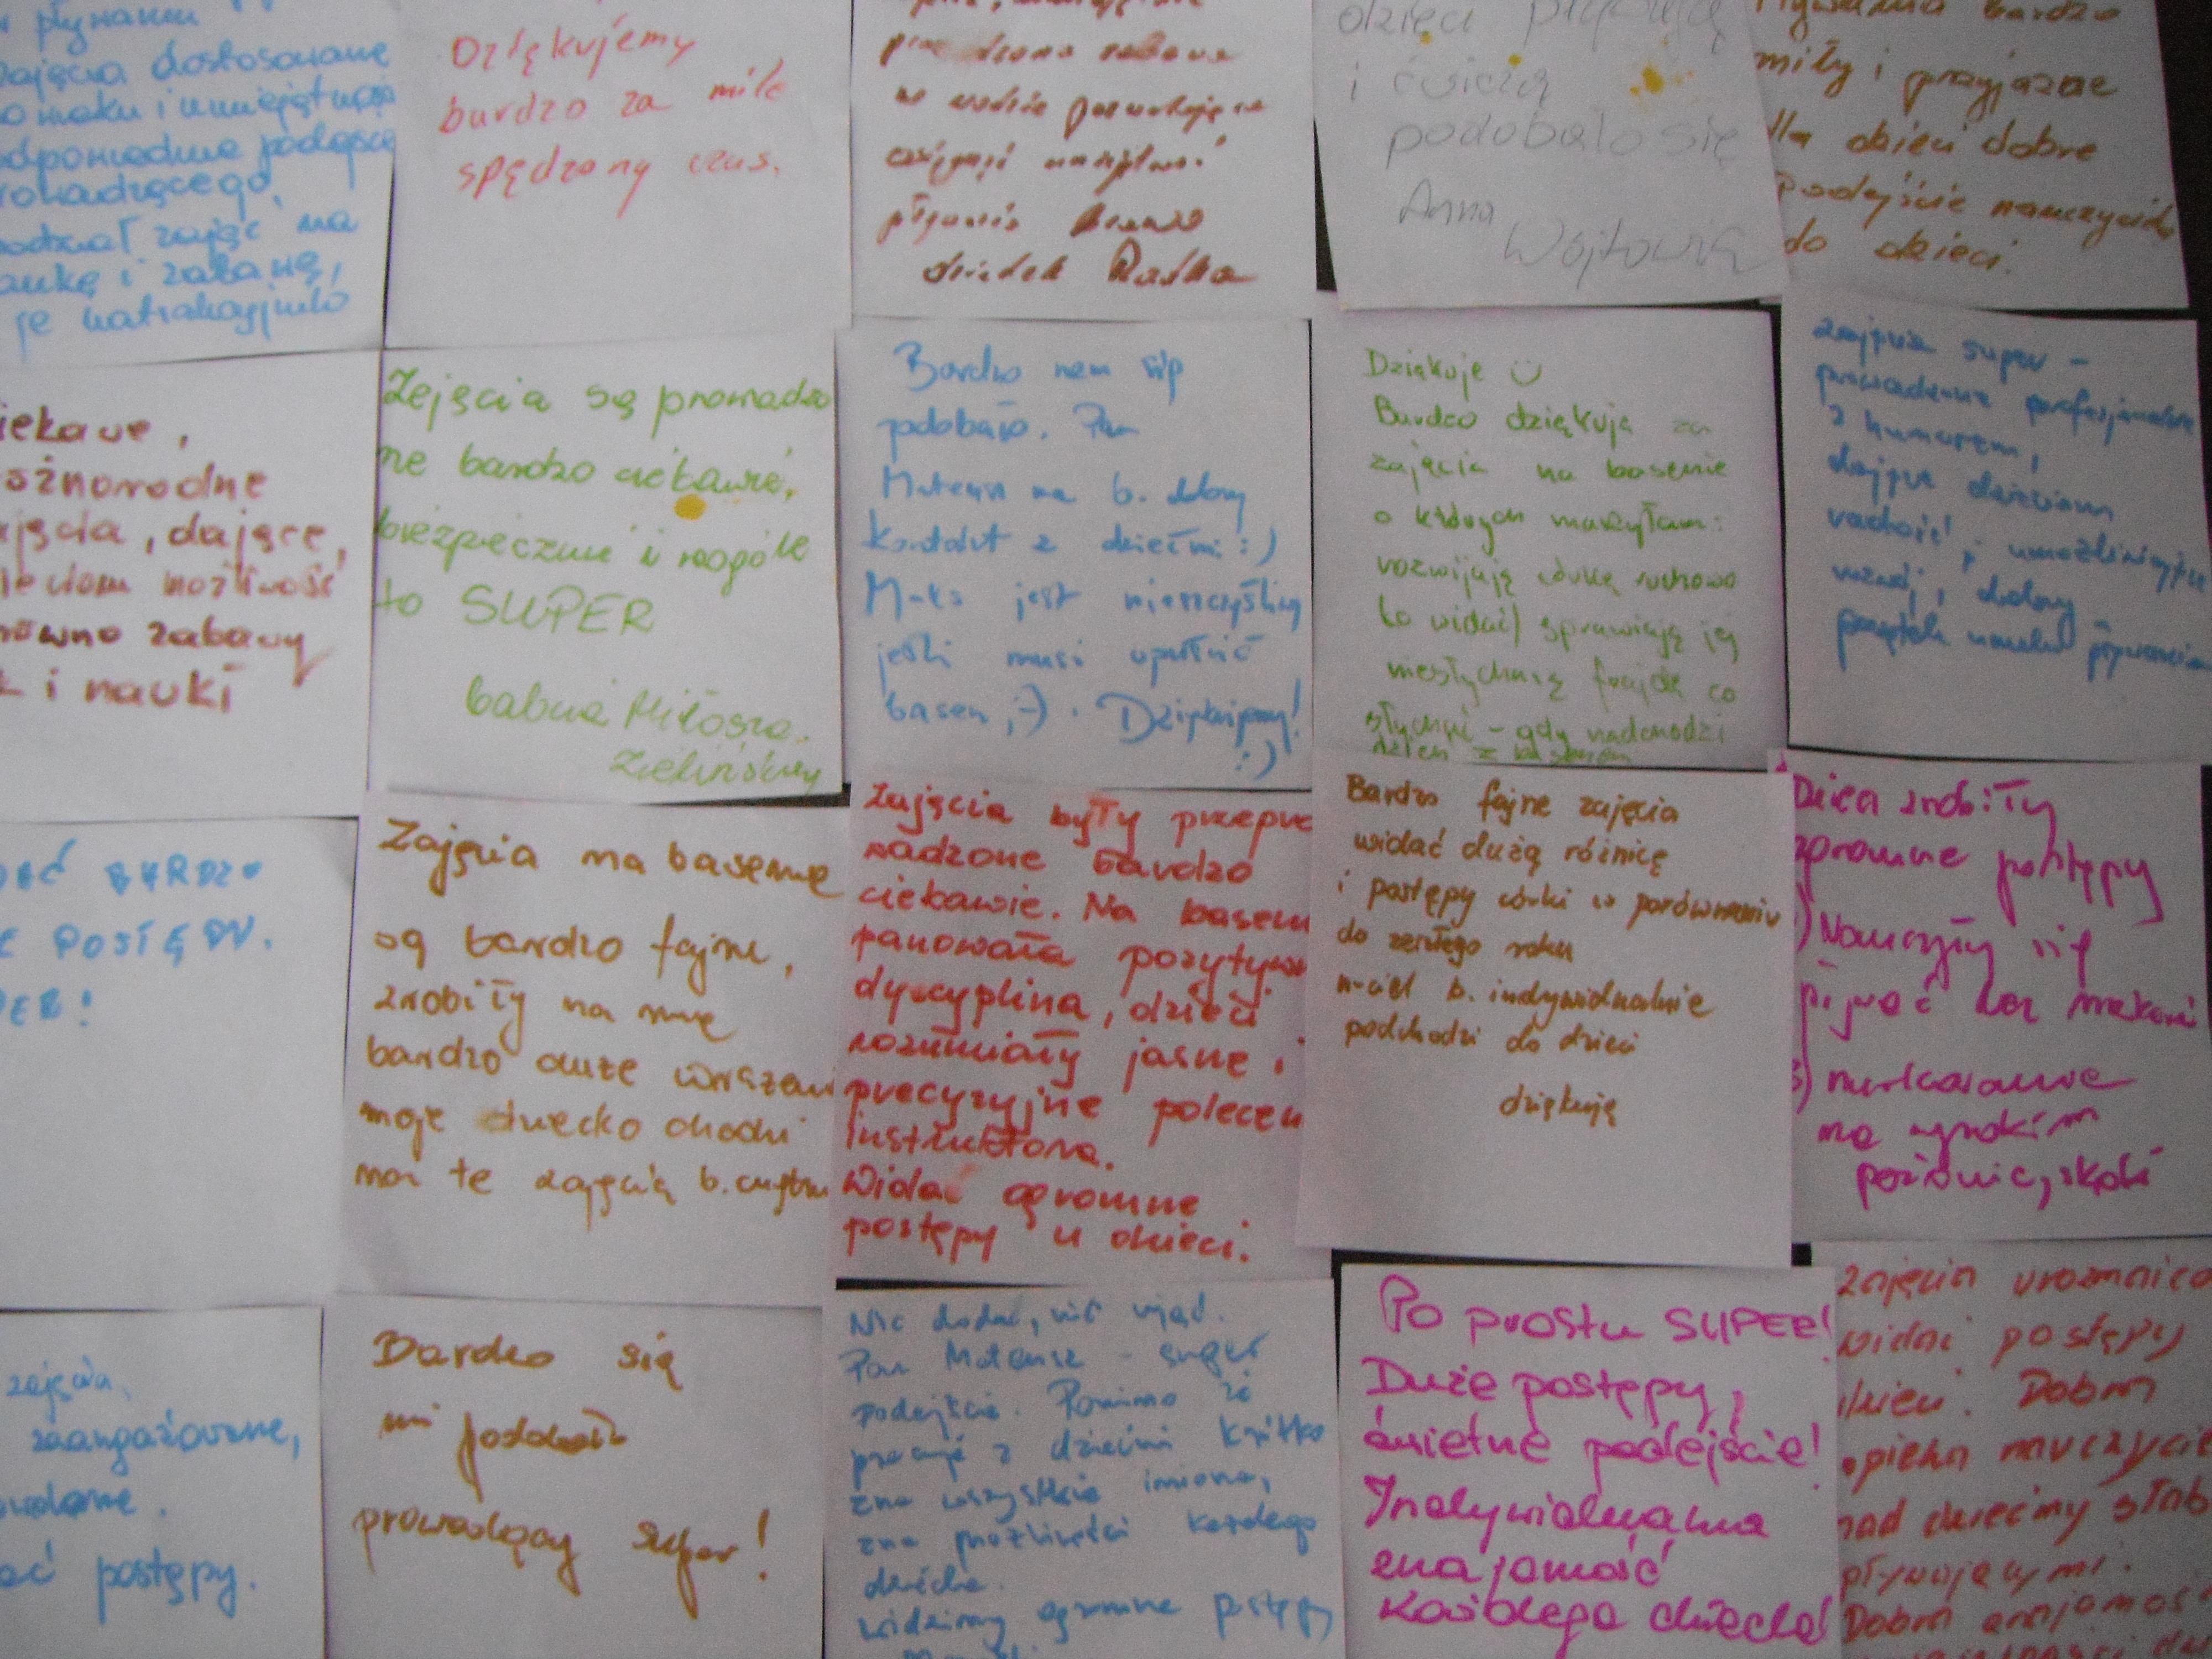 pływaniu
zajęcia dostosowane
wieku i umiejętności
odpowiednie podejście
prowadzącego,
podział zajęć na
naukę i zabawę,
Dziękujemy
bardzo za mile
spędzony czas.
zabawa
w wodzie
dziadek Radka
dzieci pływają
i ćwiczą
podobało się
Anna
Wójtowicz
bardzo
miły i przyjazne
dla dzieci dobre
Podejście nauczyciela
do dzieci.
iekawe,
óżnorodne
ajęcia, dające,
możliwość
równo zabawy
i nauki
Zejęcia są prowadzo
ne bardzo ciekawie,
bezpiecznie i wogóle
to SUPER
babcia Miłosza
Zielińskiego
Bardzo nam się
podobało. Pan
Mateusz ma b. dobry
kontakt z dziećmi :)
Maks jest nieszczęśliwy
jeśli musi opuścić
basen ;-). Dziękujemy!
:)
Dziękuje ☺
Bardzo dziękuję za
zajęcia na basenie
o których marzyłam:
rozwijają córkę ruchowo
(co widać) sprawiają jej
niesłychaną frajdę co
słychać - gdy nadchodzi
dzień z basenem
zajęcia super -
prowadzone profesjonalnie
z humorem,
dające dzieciom
radość i umożliwiające
rozwój, dobry
początek nauki pływania
BARDZO
POSTĘPY.
PER!
Zajęcia na basenie
są bardzo fajne,
zrobiły na mnie
bardzo duże wrażen
moje dziecko chodzi
na te zajęcia b. chętni
Zajęcia były przepro
wadzone bardzo
ciekawie. Na basen
panowała pozytywn
dyscyplina, dzieci
rozumiały jasne i
precyzyjne polecen
instruktora.
Widać ogromne
postępy u dzieci.
Bardzo fajne zajęcia
widać dużą różnicę
i postępy córki w porównaniu
do zeszłego roku
n-ciel b. indywidualnie
podchodzi do dzieci
dziękuję
Dzieci zrobiły
ogromne postępy
) Nauczyły się
pływać bez makaronu
3) nurkowanie
na wysokim
poziomie, skoki
zajęcia,
zaangażowanie,
ać postępy.
Bardzo się
mi podobało
prowadzący super!
Nic dodać, nic ująć.
Pan Mateusz - super
podejście. Pomimo że
pracuje z dziećmi krótko
zna wszystkie imiona,
zna możliwości każdego
dziecka.
widzimy ogromne postępy
Po prostu SUPER!
Duże postępy,
świetne podejście!
Indywidualna
znajomość
każdego dziecka!
Zajęcia urozmaico
widać postępy
dzieci. Dobra
opieka nauczycie
nad dziećmi słab
pływającymi.
Dobra znajomość